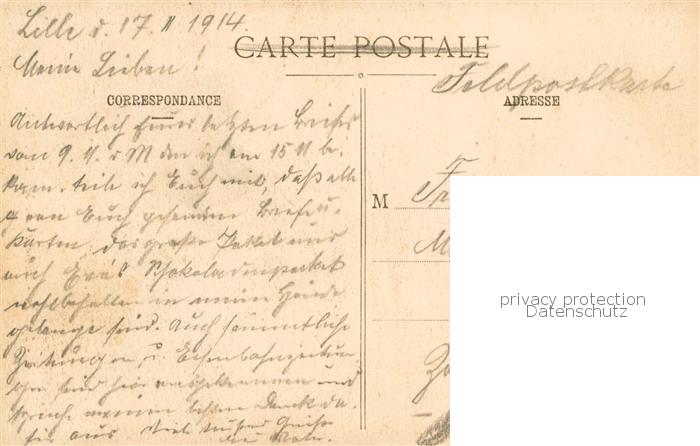 Lille d. 17. 11 1914
CARTE POSTALE
Meine Lieben!
Feldpostkarte
CORRESPONDANCE
ADRESSE
Antwortlich Eures letzten Briefes
vom 9. 11. d M den ich am 15 11 be-
kam. teile ich Euch mit, daß alle
4 von Euch gesandten Briefe u.
Karten, das große Paket und
auch Schokoladenpacket
wohlbehalten in meine Hände
gelangt sind. Auch sämmtliche
Zeitungen, u. Eisenbahnzeitun-
gen sind hier angekommen und
spreche meinen besten Dank da-
für aus Viele Grüße
M
privacy protection
Datenschutz